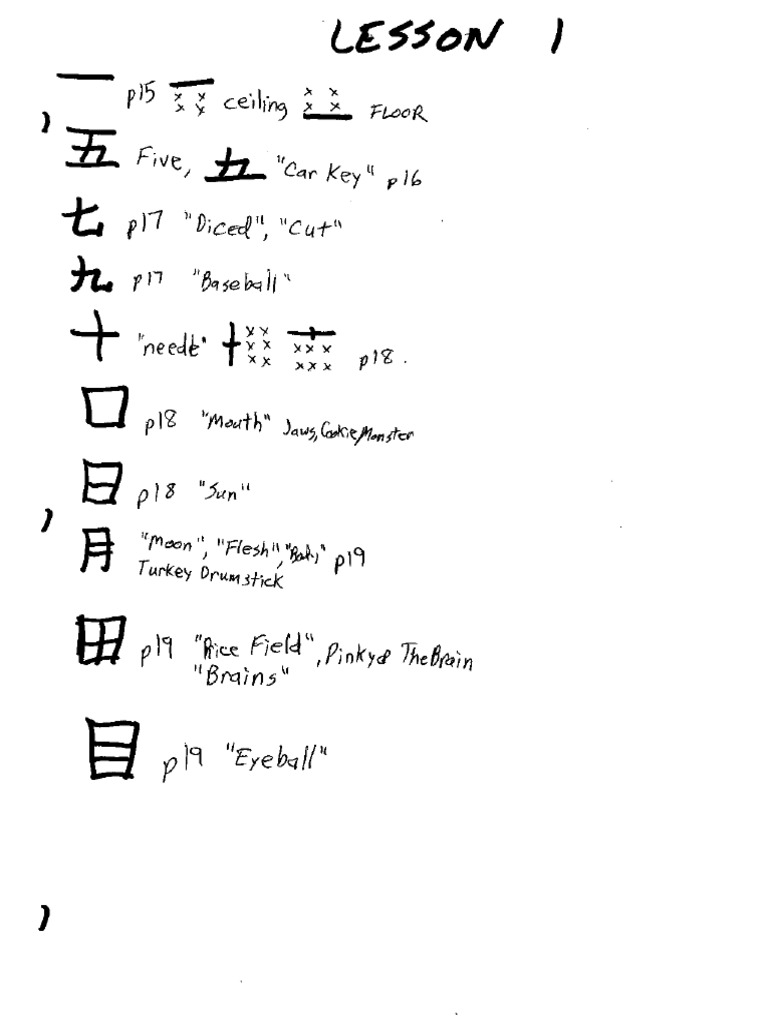 LESSON 1
一 p15 ceiling FLOOR
五 Five, "Car Key" p16
七 p17 "Diced", "Cut"
九 p17 "Baseball"
十 "needle" p18.
口 p18 "Mouth" Jaws, Cookie Monster
日 p18 "Sun"
月 "Moon", "Flesh", p19
Turkey Drumstick
田 p19 "Rice Field", Pinky & The Brain
"Brains"
目 p19 "Eyeball"